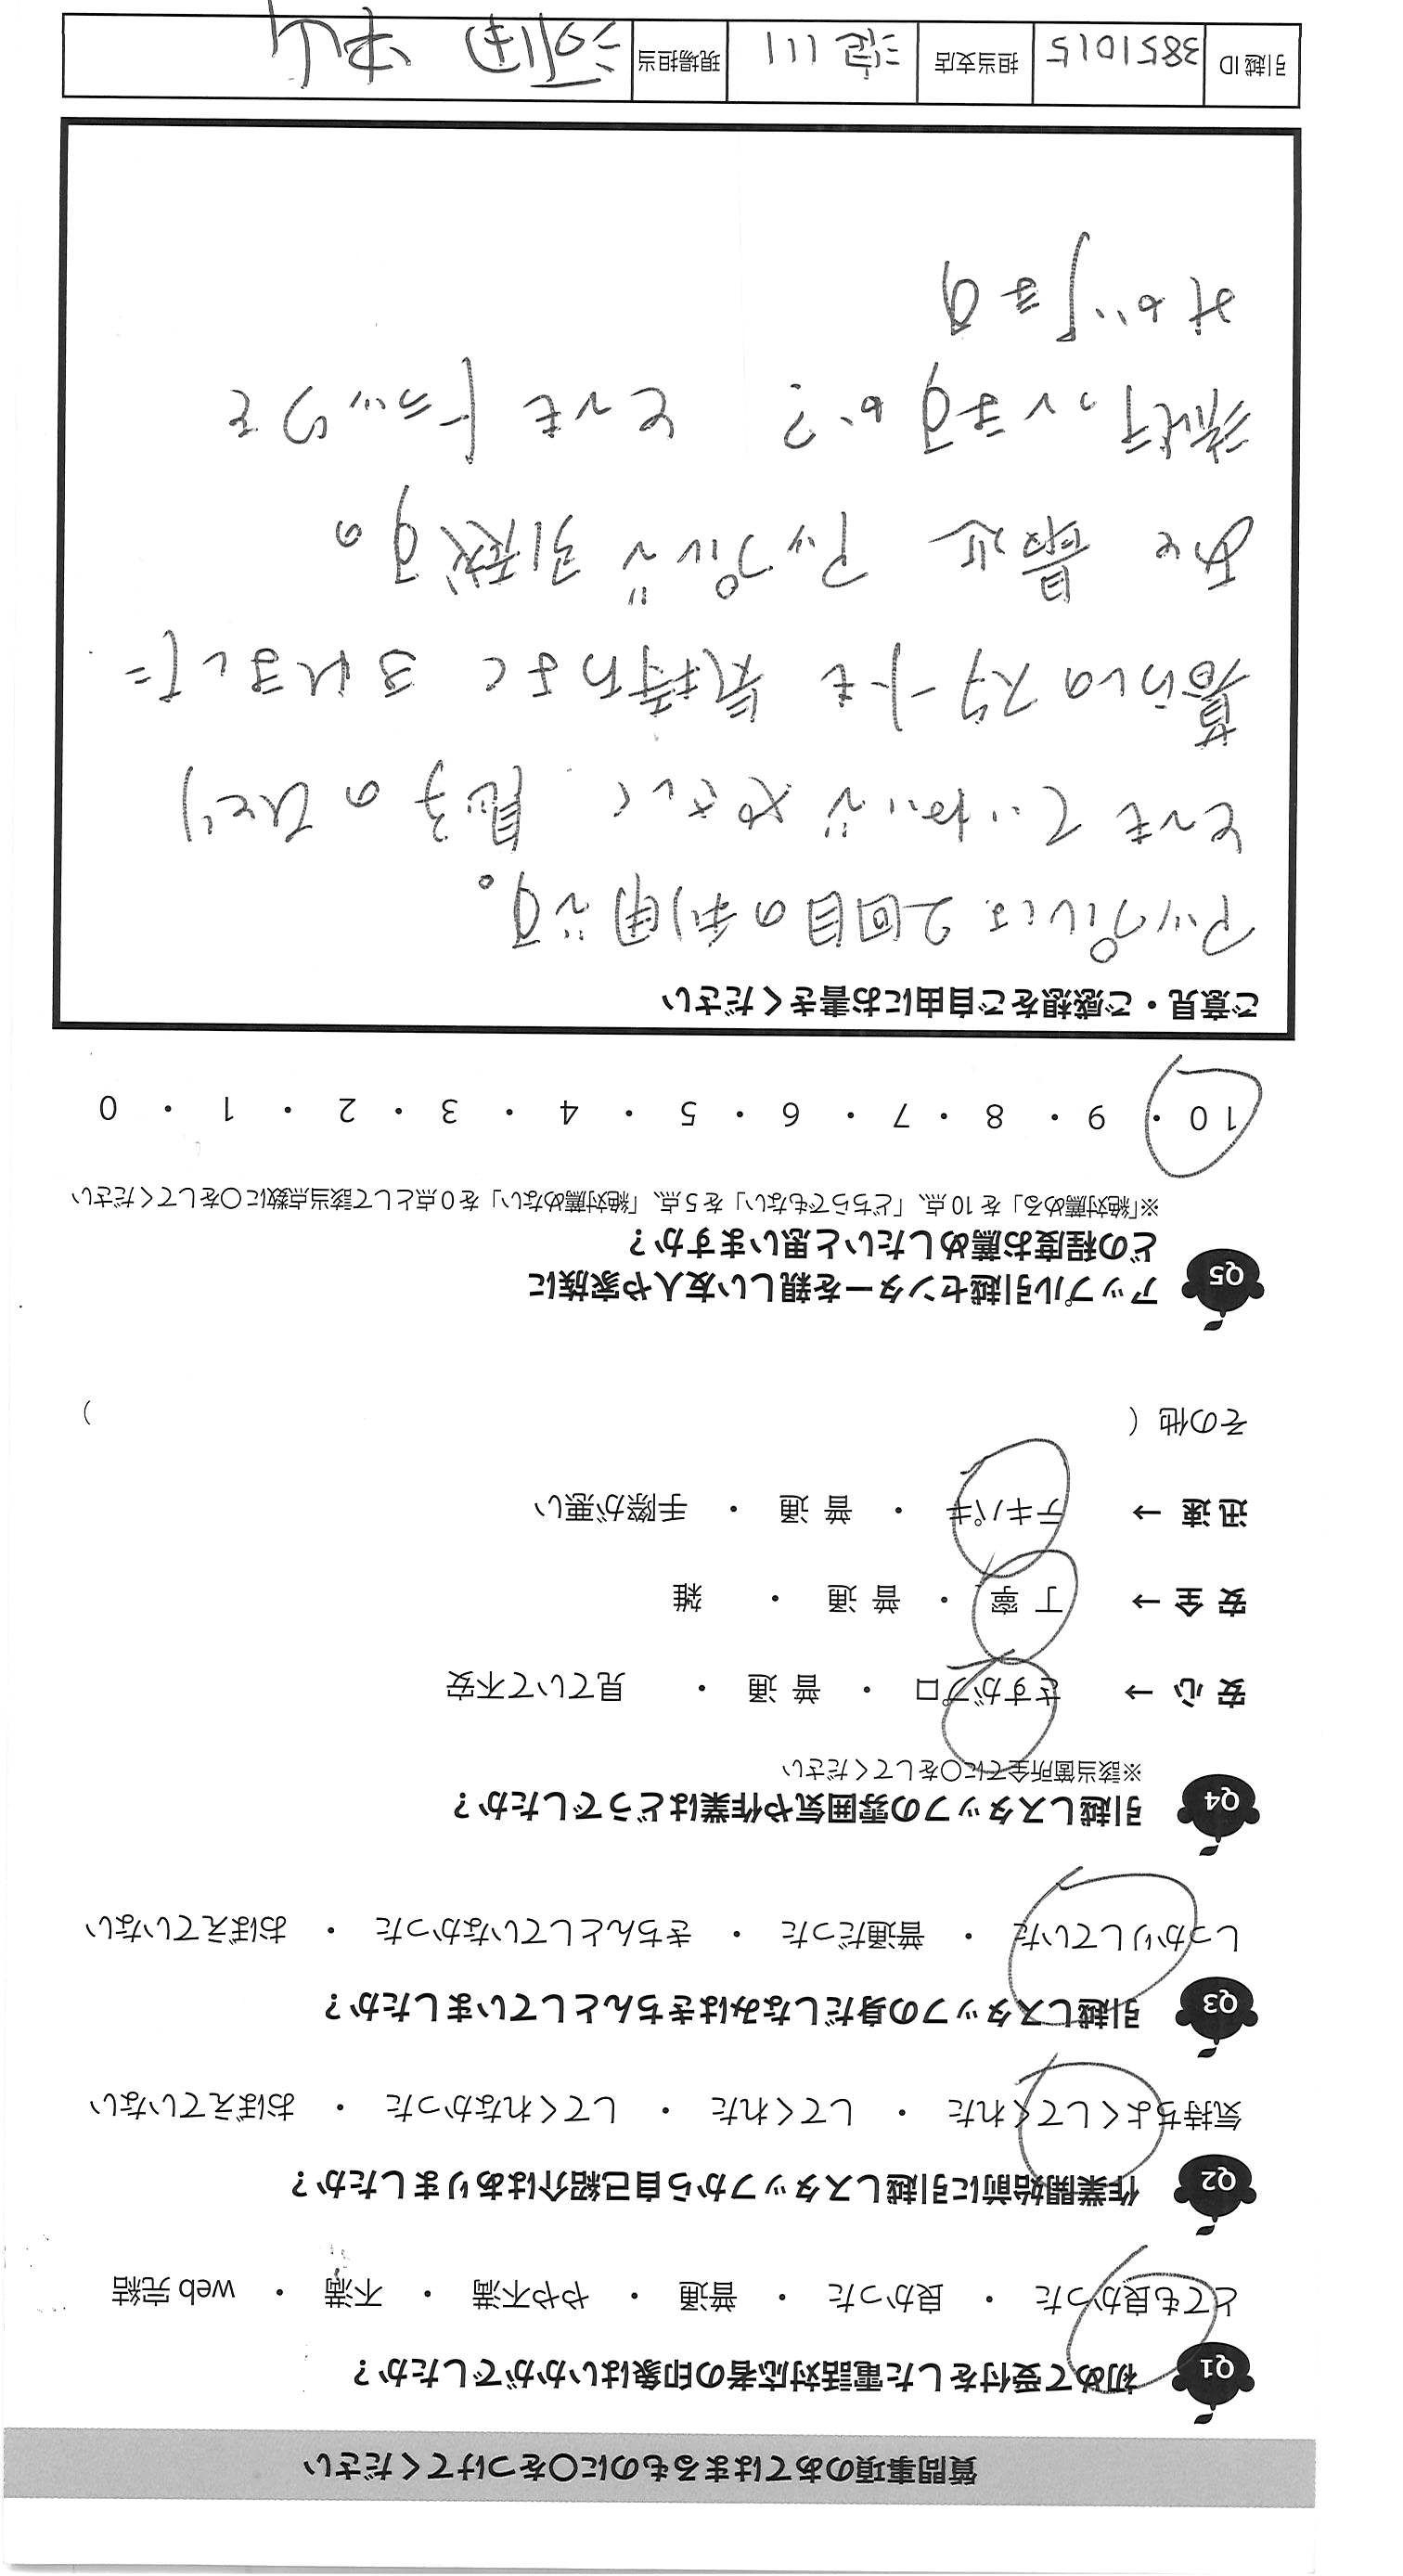 質問事項のあてはまるものに〇をつけてください
Q1 初めて受付をした電話対応者の印象はいかがでしたか？
とても良かった ・ 良かった ・ 普通 ・ やや不満 ・ 不満 ・ web 完結
Q2 作業開始前に引越しスタッフから自己紹介はありましたか？
気持ちよくしてくれた ・ してくれた ・ してくれなかった ・ おぼえていない
Q3 引越しスタッフの身だしなみはきちんとしていましたか？
しっかりしていた ・ 普通だった ・ きちんとしていなかった ・ おぼえていない
Q4 引越しスタッフの雰囲気や作業はどうでしたか？
※該当箇所全てに〇をしてください
安 心 → さすがプロ ・ 普 通 ・ 見ていて不安
安 全 → 丁 寧 ・ 普 通 ・ 雑
迅 速 → テキパキ ・ 普 通 ・ 手際が悪い
その他（ ）
Q5 アップル引越センターを親しい友人や家族に
どの程度お薦めしたいと思いますか？
※「絶対薦める」を 10 点、「どちらでもない」を 5 点、「絶対薦めない」を 0 点として該当点数に〇をしてください
10 ・ 9 ・ 8 ・ 7 ・ 6 ・ 5 ・ 4 ・ 3 ・ 2 ・ 1 ・ 0
ご意見・ご感想をご自由にお書きください
アップルは2回目の利用です。
とってもていねいでやさしく 息子のひとり
暮らしのスタートも気持ちよくきれました
あと 最近 アップルで引越すの
流行ってますか？ とってもトラックを
見かけます
引越 ID 3851015 担当支店 港111 現場担当